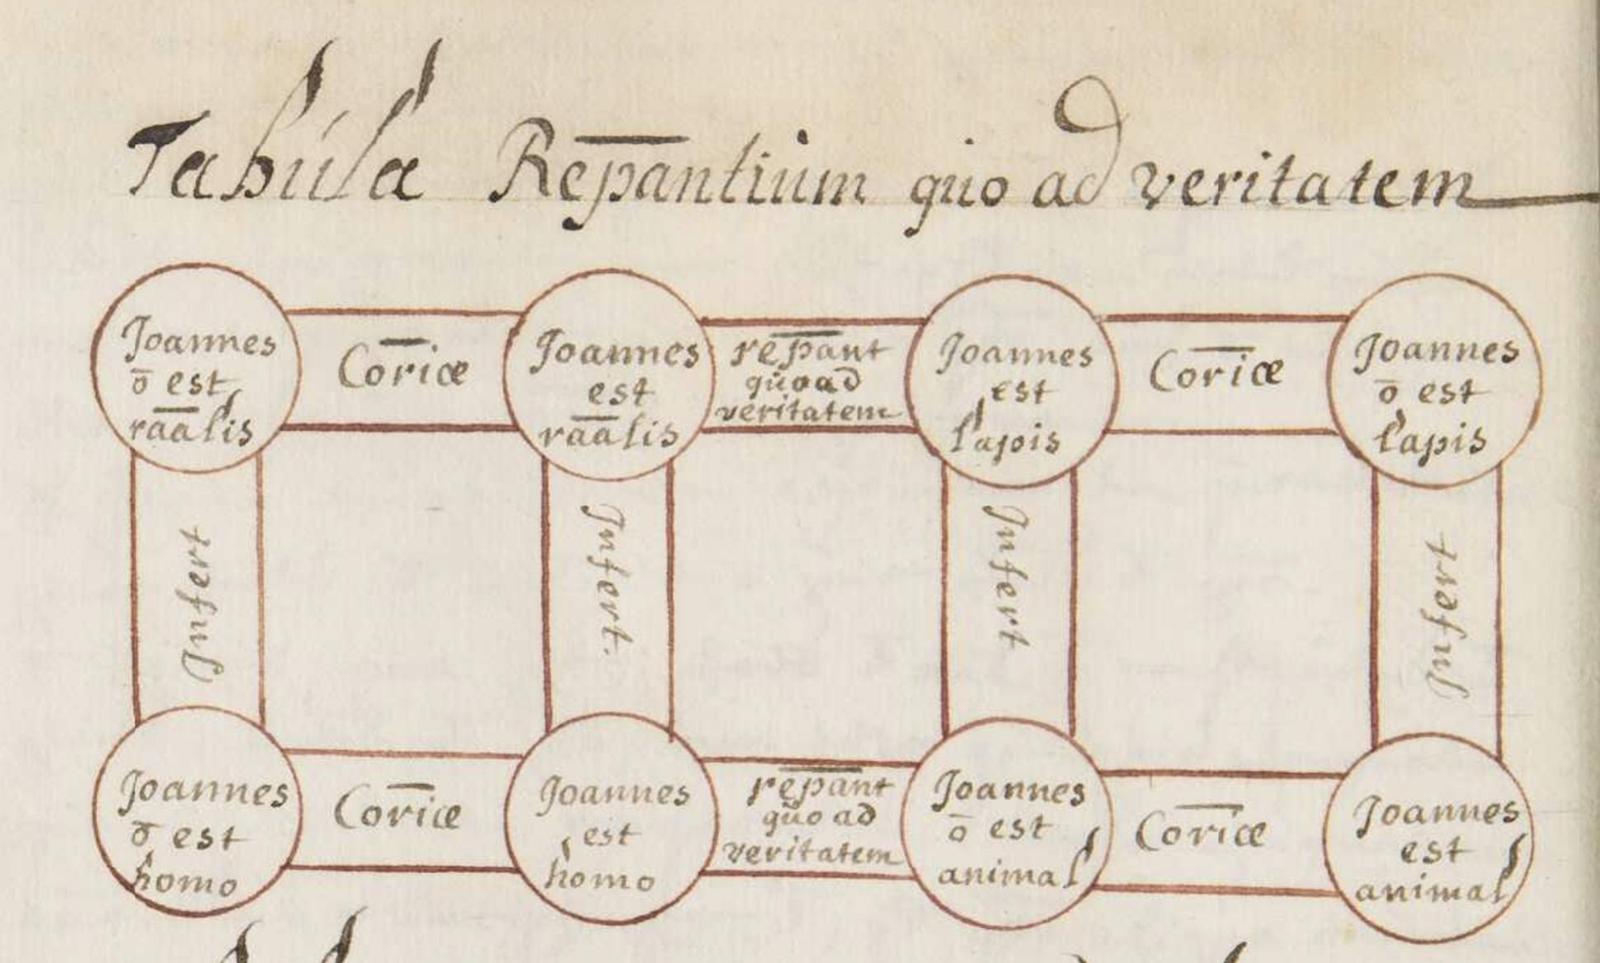 Tabúla Rep̅a̅ntium quo ad veritatem
Joannes
o̅ est
ra̅a̅lis
Co̅r̅iæ
Joannes
est
ra̅a̅lis
re̅p̅a̅nt
quoad
veritatem
Joannes
est
lapis
Co̅r̅iæ
Joannes
o̅ est
lapis
Infert
Infert.
Infert
Infert
Joannes
o̅ est
homo
Co̅r̅iæ
Joannes
est
homo
re̅p̅a̅nt
quo ad
veritatem
Joannes
o̅ est
animal
Co̅r̅iæ
Joannes
est
animal